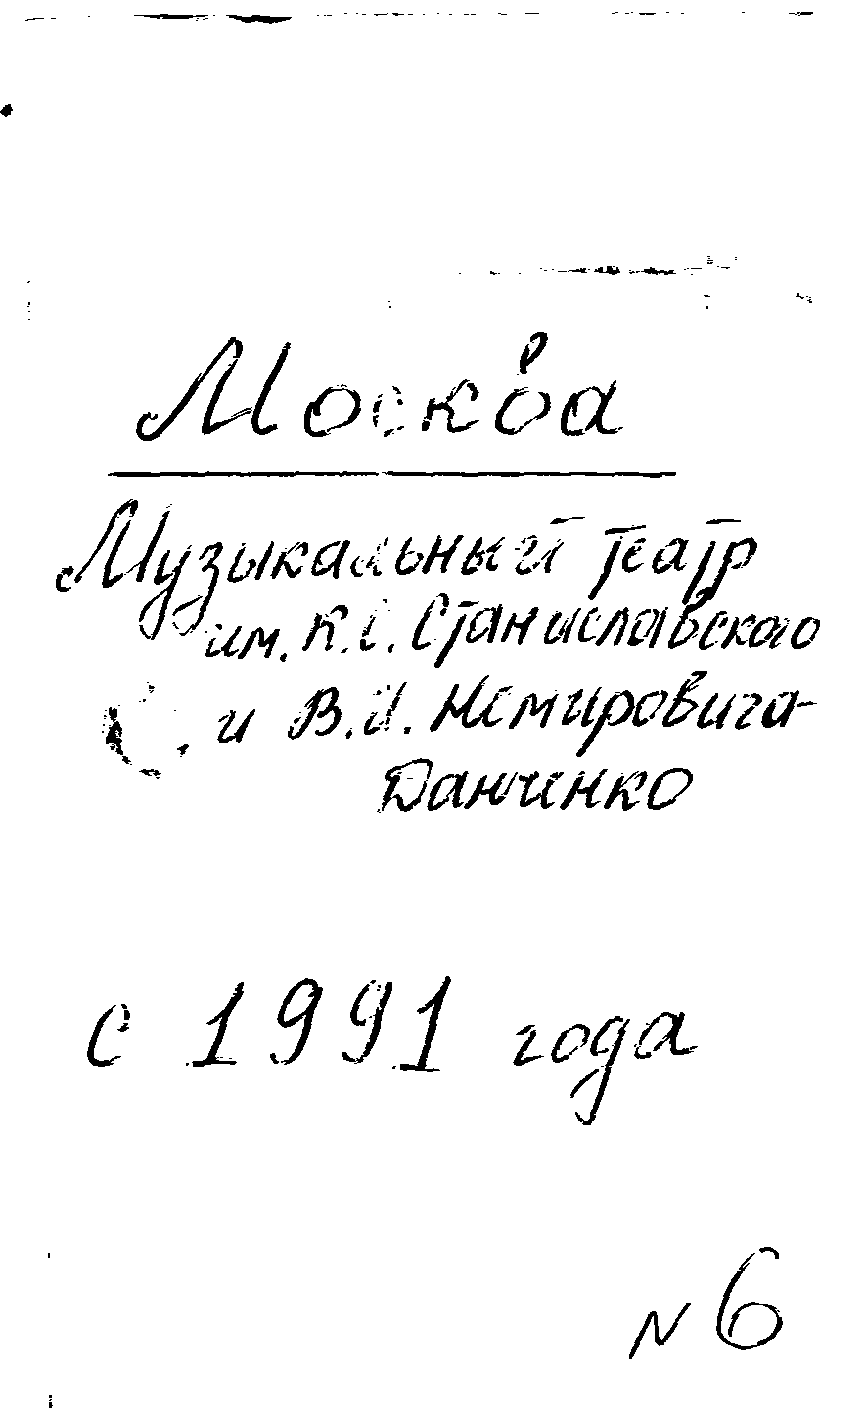 Москва
Музыкальный театр
им. К.С. Станиславского
и В.И. Немировича-
Данченко
с 1991 года
N 6